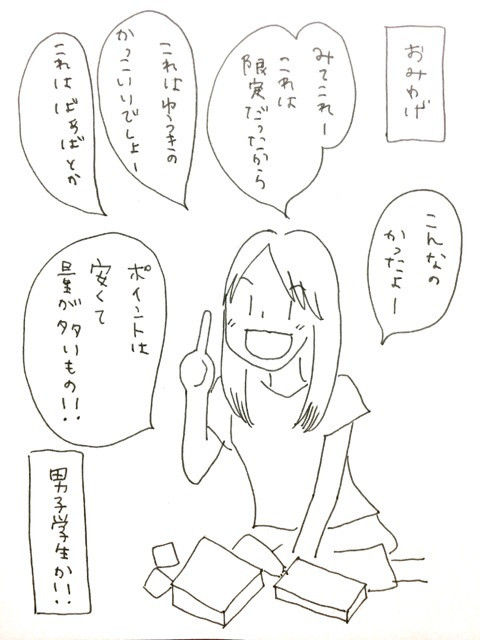 おみやげ
こんなの
かったよー
みてこれー
これは
限定だったから
これはゆうきの
かっこいいでしょー
これはばあばとか
ポイントは
安くて
量が多いもの!!
男子学生か!!